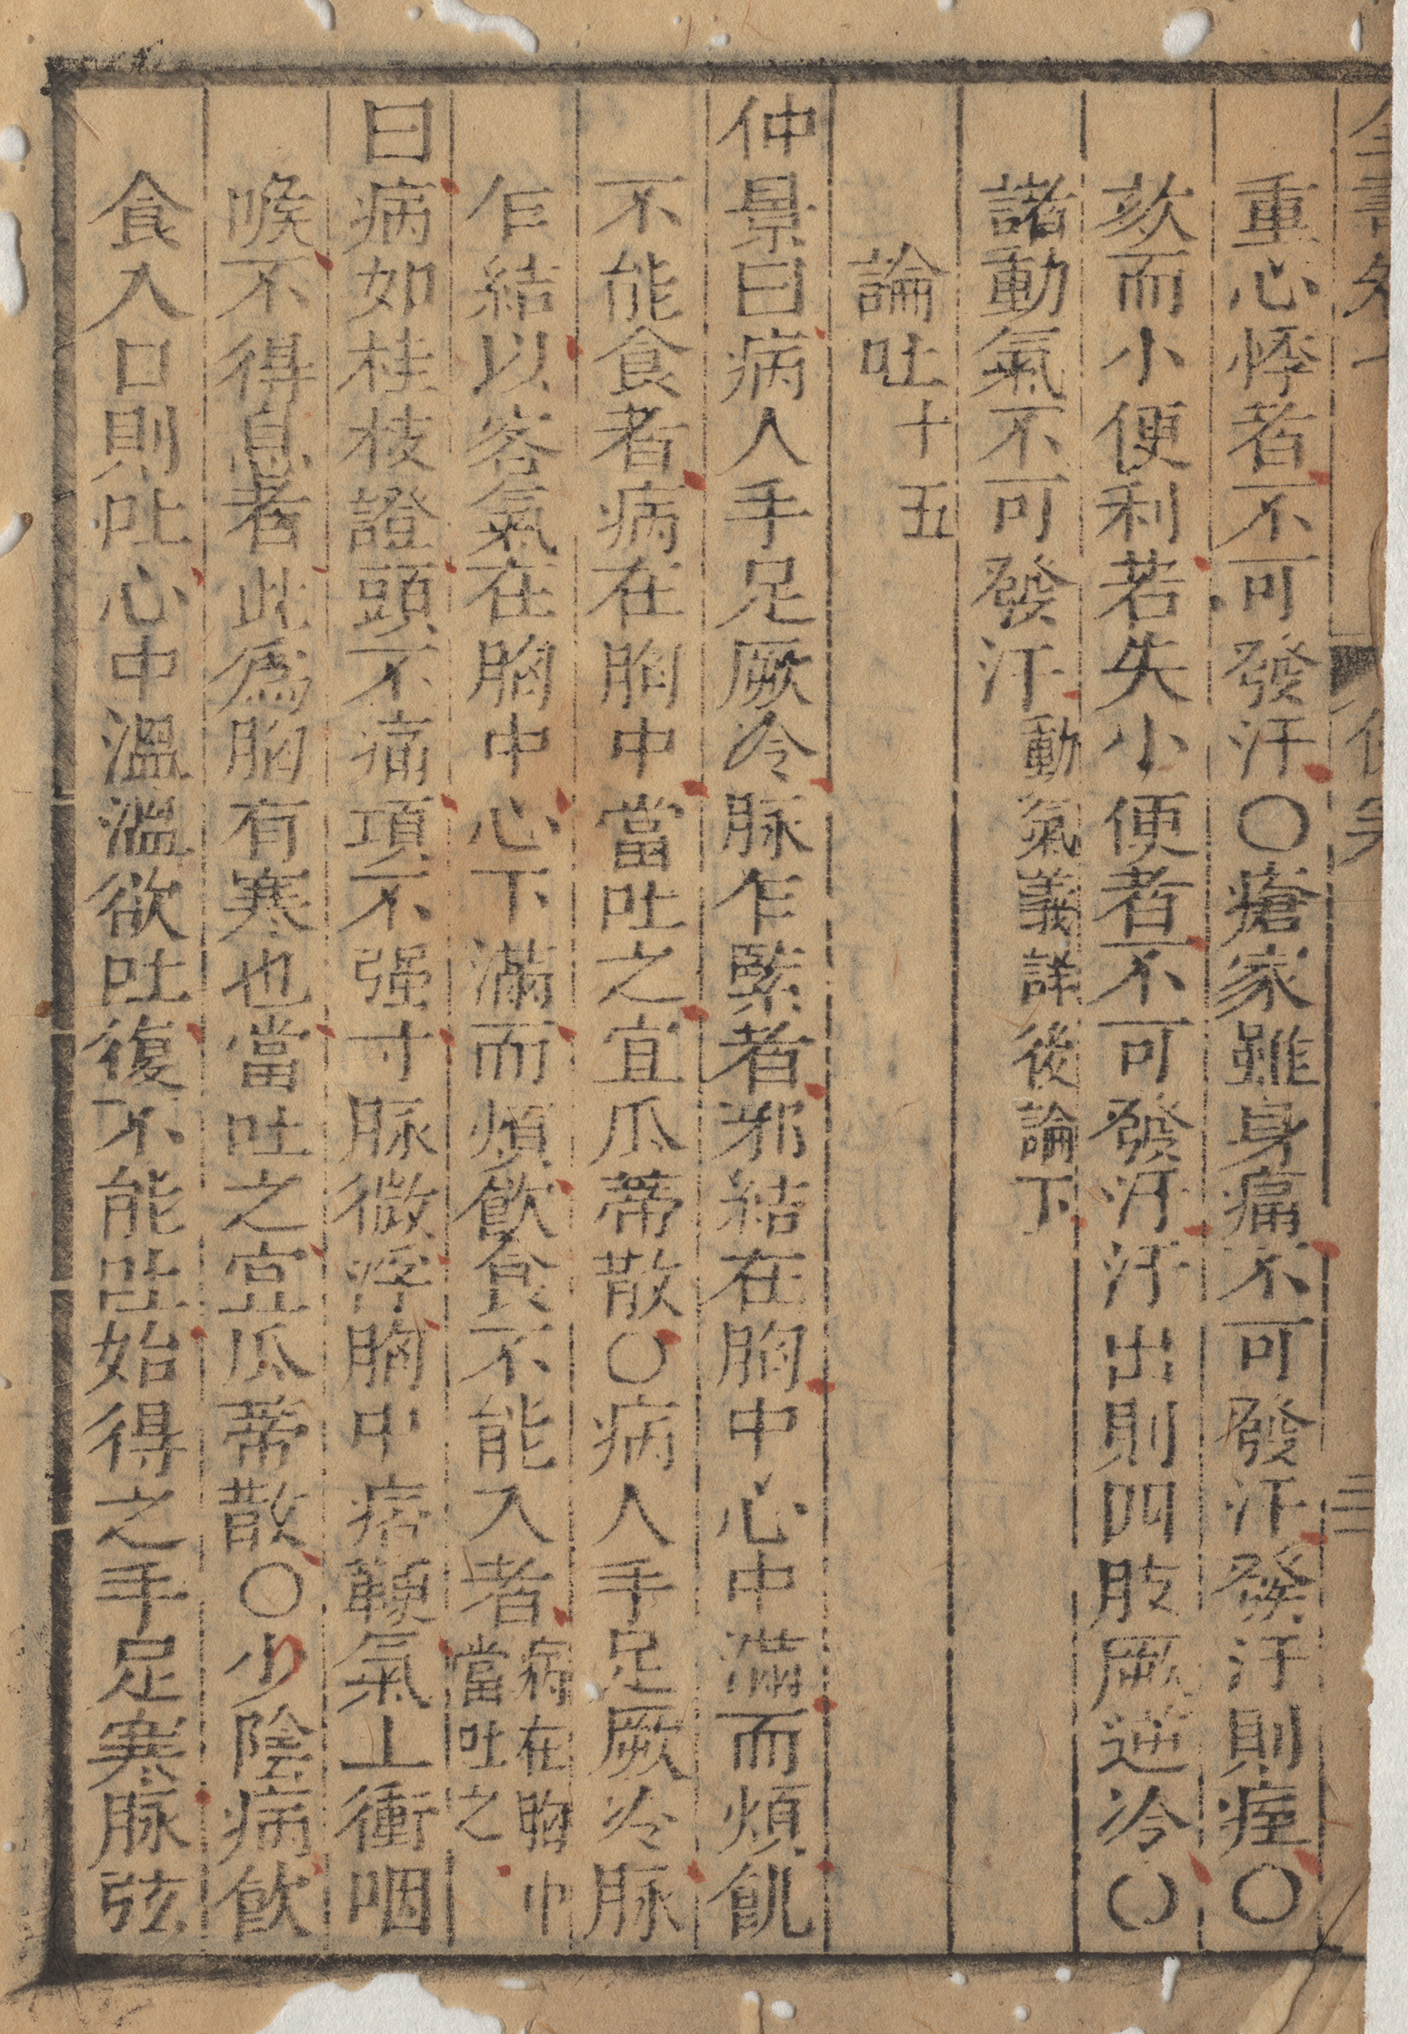 重心悸者不可發汗○瘡家雖身痛不可發汗發汗則痓○
欬而小便利若失小便者不可發汗汗出則四肢厥逆冷○
諸動氣不可發汗動氣義詳後論下
論吐十五
仲景曰病人手足厥冷脉乍緊者邪結在胸中心中滿而煩飢
不能食者病在胸中當吐之宜瓜蒂散○病人手足厥冷脉
乍結以客氣在胸中心下滿而煩飲食不能入者病在胸中
當吐之
曰病如桂枝證頭不痛項不强寸脉微浮胸中痞鞕氣上衝咽
喉不得息者此爲胸有寒也當吐之宜瓜蒂散○少陰病飲
食入口則吐心中溫溫欲吐復不能吐始得之手足寒脉弦